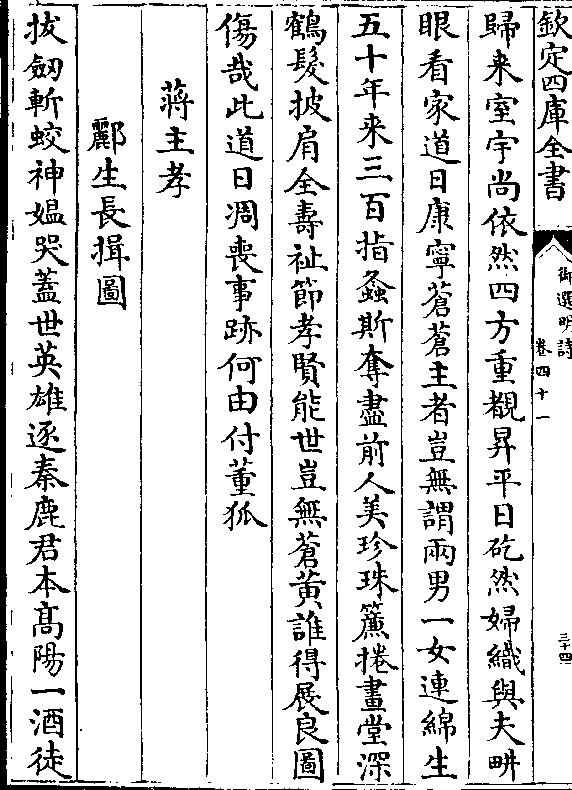 欽定四庫全書
御選明詩
卷四十一
三十四
歸來室宇尚依然四方重覩昇平日矻然婦織與夫畊
眼看家道日康寧蒼蒼主者豈無謂兩男一女連綿生
五十年来三百指螽斯奪盡前人美珍珠簾捲畫堂深
鶴髮披肩全壽祉節孝賢能世豈無蒼黃誰得展良圖
傷哉此道日凋喪事跡何由付董狐
蔣主孝
酈生長揖圖
拔劒斬蛟神媪哭蓋世英雄逐秦鹿君本髙陽一酒徒